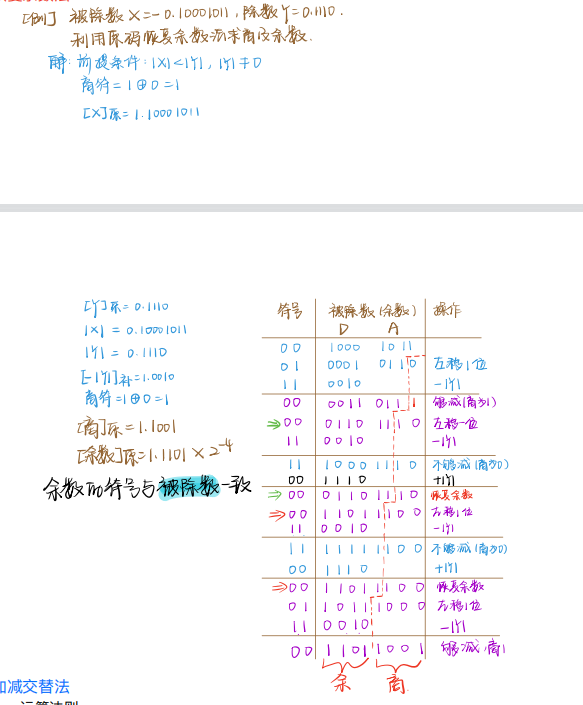 [例] 被除数X=-0.10001011,除数Y=0.1110.
利用原码恢复余数法求商及余数.
解: 前提条件: |X|<|Y|, |Y|≠0
商符=1⊕0=1
[X]原=1.10001011
[Y]原=0.1110
|X| = 0.10001011
|Y| = 0.1110
[-|Y|]补=1.0010
商符=1⊕0=1
[商]原=1.1001
[余数]原=1.1101×2⁻⁴
余数的符号与被除数一致
符号 被除数(余数) 操作
D A
00 1000 1011
01 0001 0110 左移1位
11 0010 -|Y|
00 0011 0111 够减(商1)
⇒00 0110 1110 左移一位
11 0010 -|Y|
11 1000 1110 不够减(商0)
00 1110 +|Y|
⇒00 0110 1110 恢复余数
⇒00 1101 1100 左移1位
11 0010 -|Y|
11 1111 1100 不够减(商0)
00 1110 +|Y|
⇒00 1101 1100 恢复余数
01 1011 1000 左移1位
11 0010 -|Y|
00 1101 1001 够减,商1
余 商
加减交替法